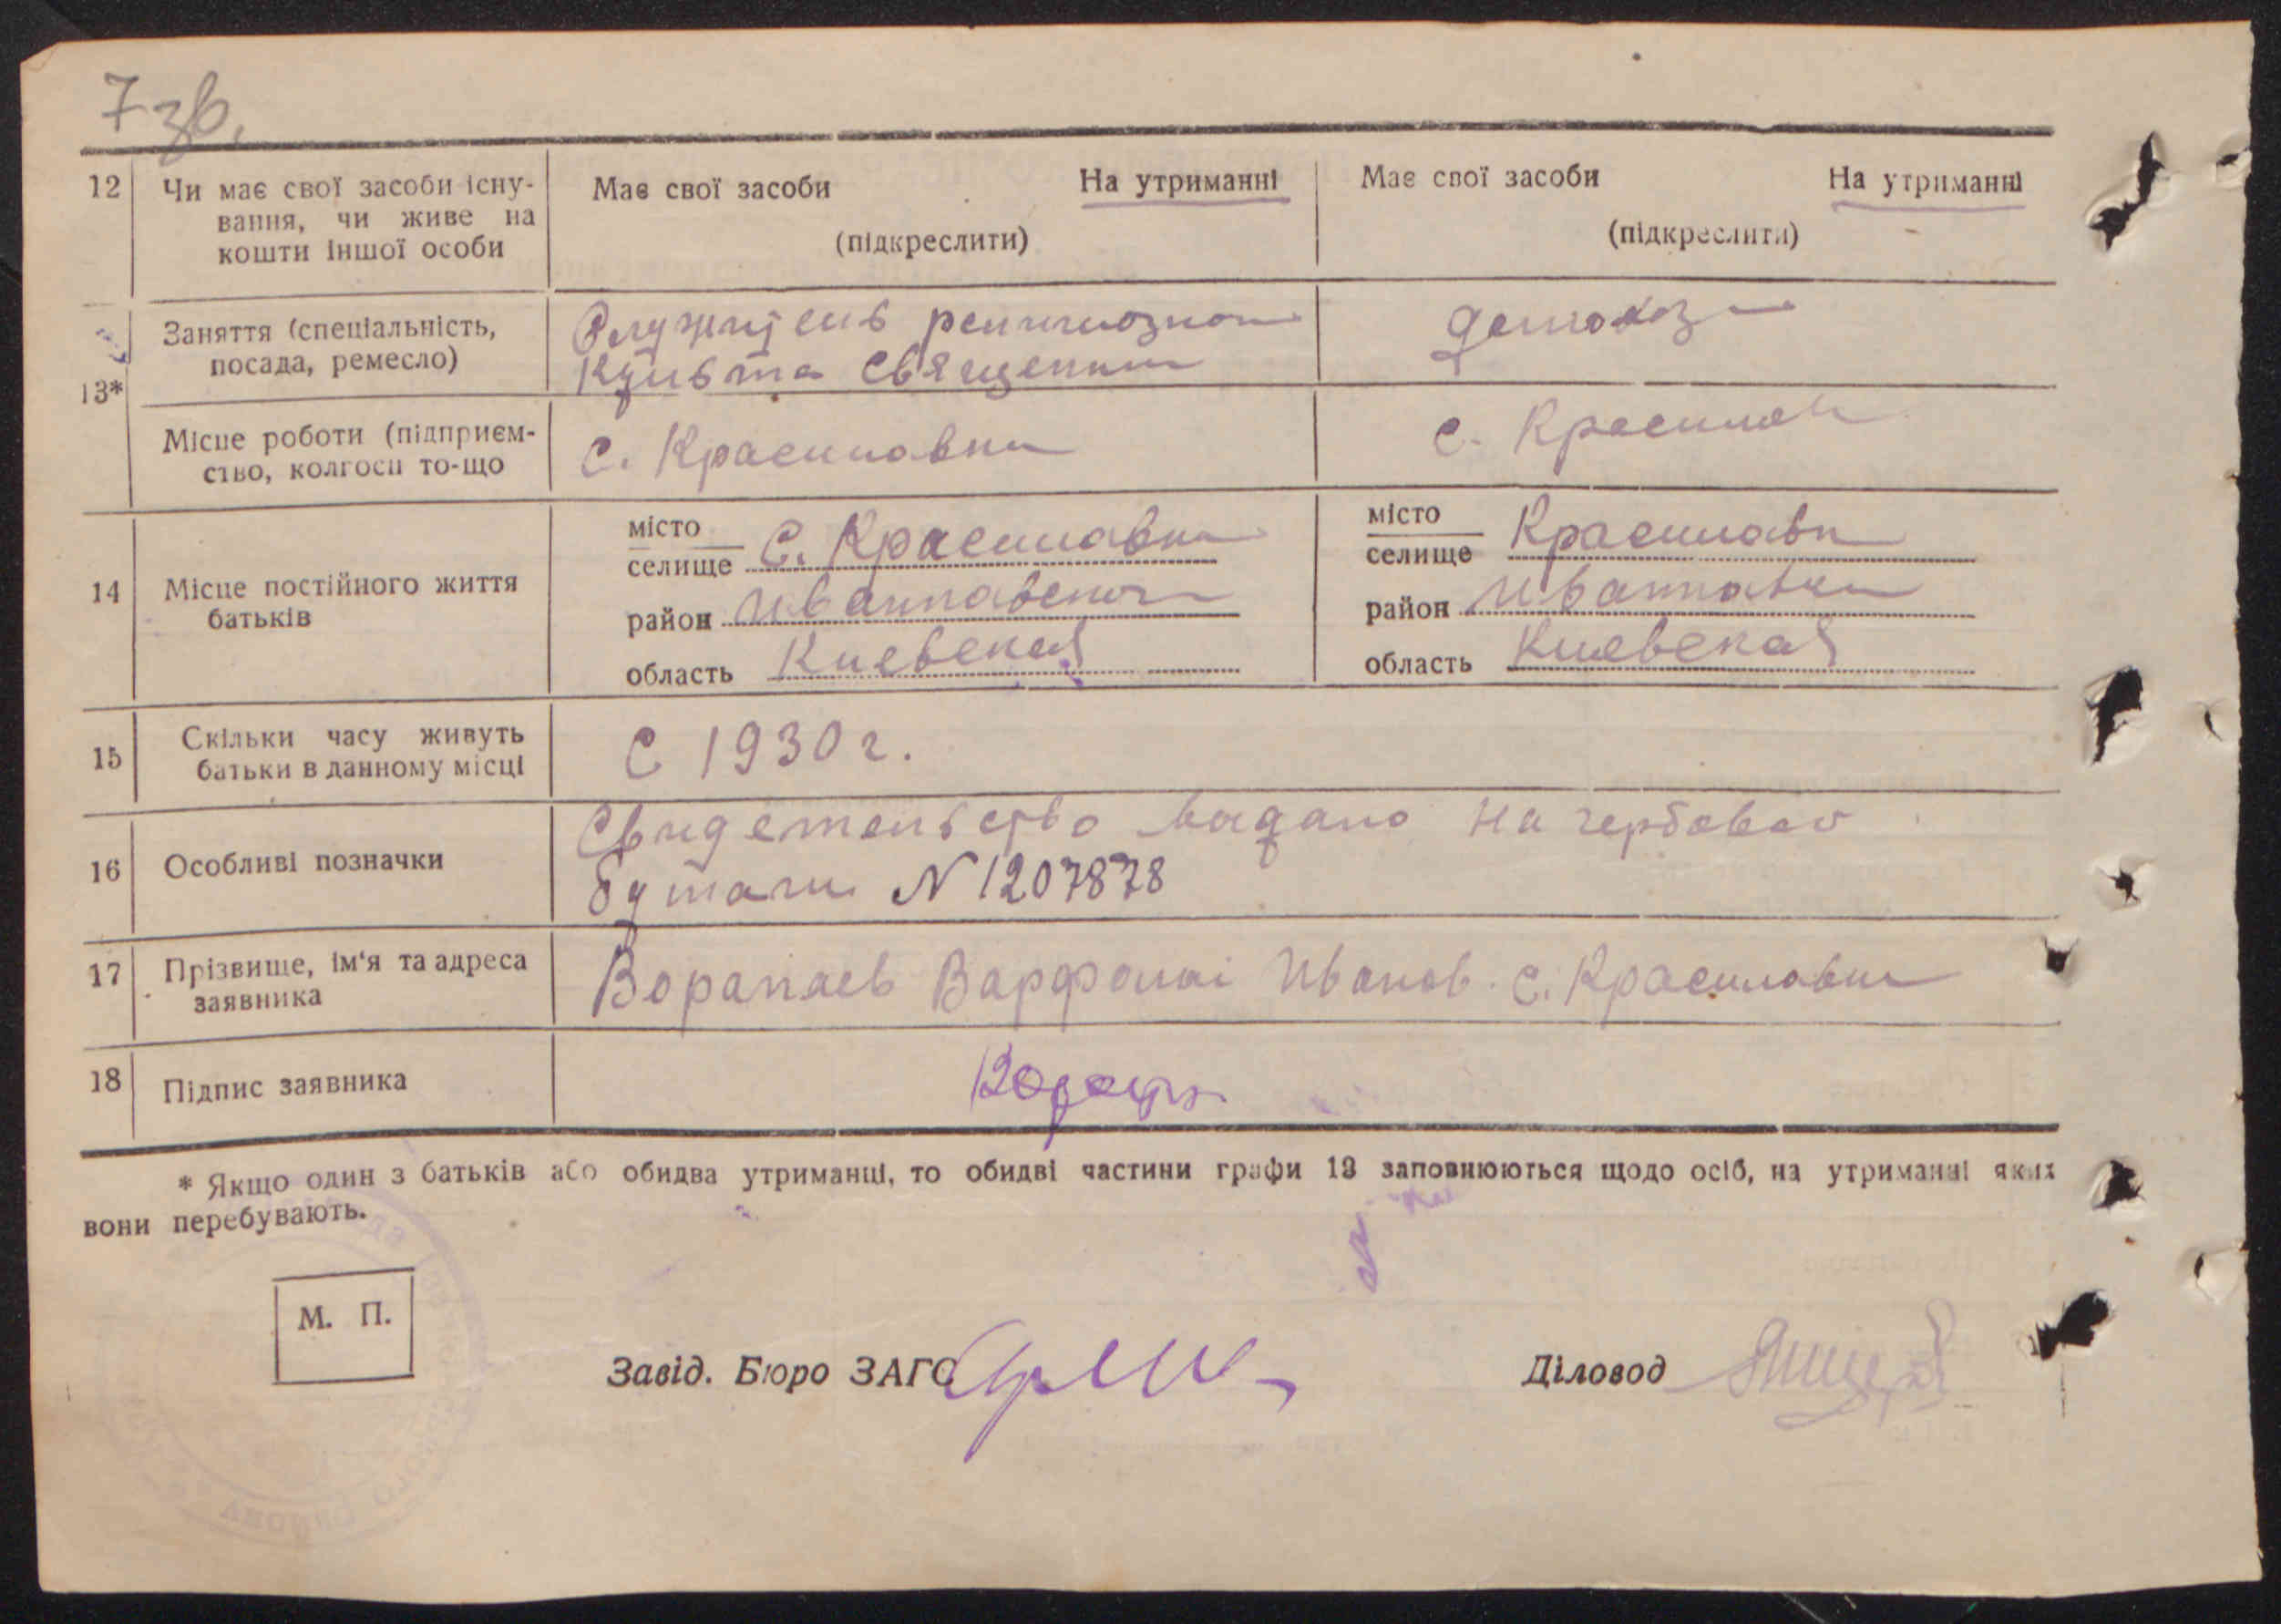 7 зв.
12 Чи має свої засоби існу-
вання, чи живе на
кошти іншої особи
Має свої засоби На утриманні
(підкреслити)
Має свої засоби На утриманні
(підкреслити)
13*
Заняття (спеціальність,
посада, ремесло)
Служитель религиозно
культа священник
домохоз
Місце роботи (підприєм-
ство, колгосп то-що
с. Красиловки
с. Красилов
14 Місце постійного життя
батьків
місто
селище с. Красиловки
район Иванковском
область Киевская
місто
селище Красиловк
район Иванковск
область Киевская
15 Скільки часу живуть
батьки в данному місці
С 1930 г.
16 Особливі позначки
Свидетельство видано на гербовой
бумаги N 1207878
17 Прізвище, ім'я та адреса
заявника
Ворапаев Иванов. с. Красиловки
18 Підпис заявника
* Якщо один з батьків або обидва утриманці, то обидві частини графи 13 заповнюються щодо осіб, на утриманні яких
вони перебувають.
М. П.
Завід. Бюро ЗАГС
Діловод